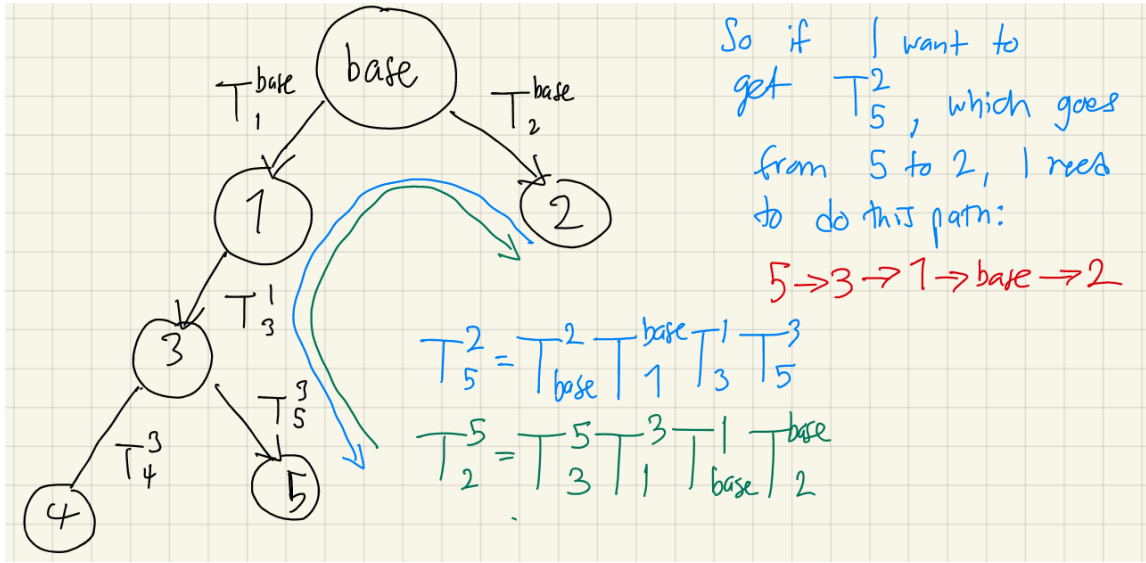 base
T_1^base
T_2^base
1
2
T_3^1
3
T_4^3
T_5^3
4
5
So if I want to
get T_5^2, which goes
from 5 to 2, I need
to do this path:
5→3→1→base→2
T_5^2 = T_base^2 T_1^base T_3^1 T_5^3
T_2^5 = T_3^5 T_1^3 T_base^1 T_2^base